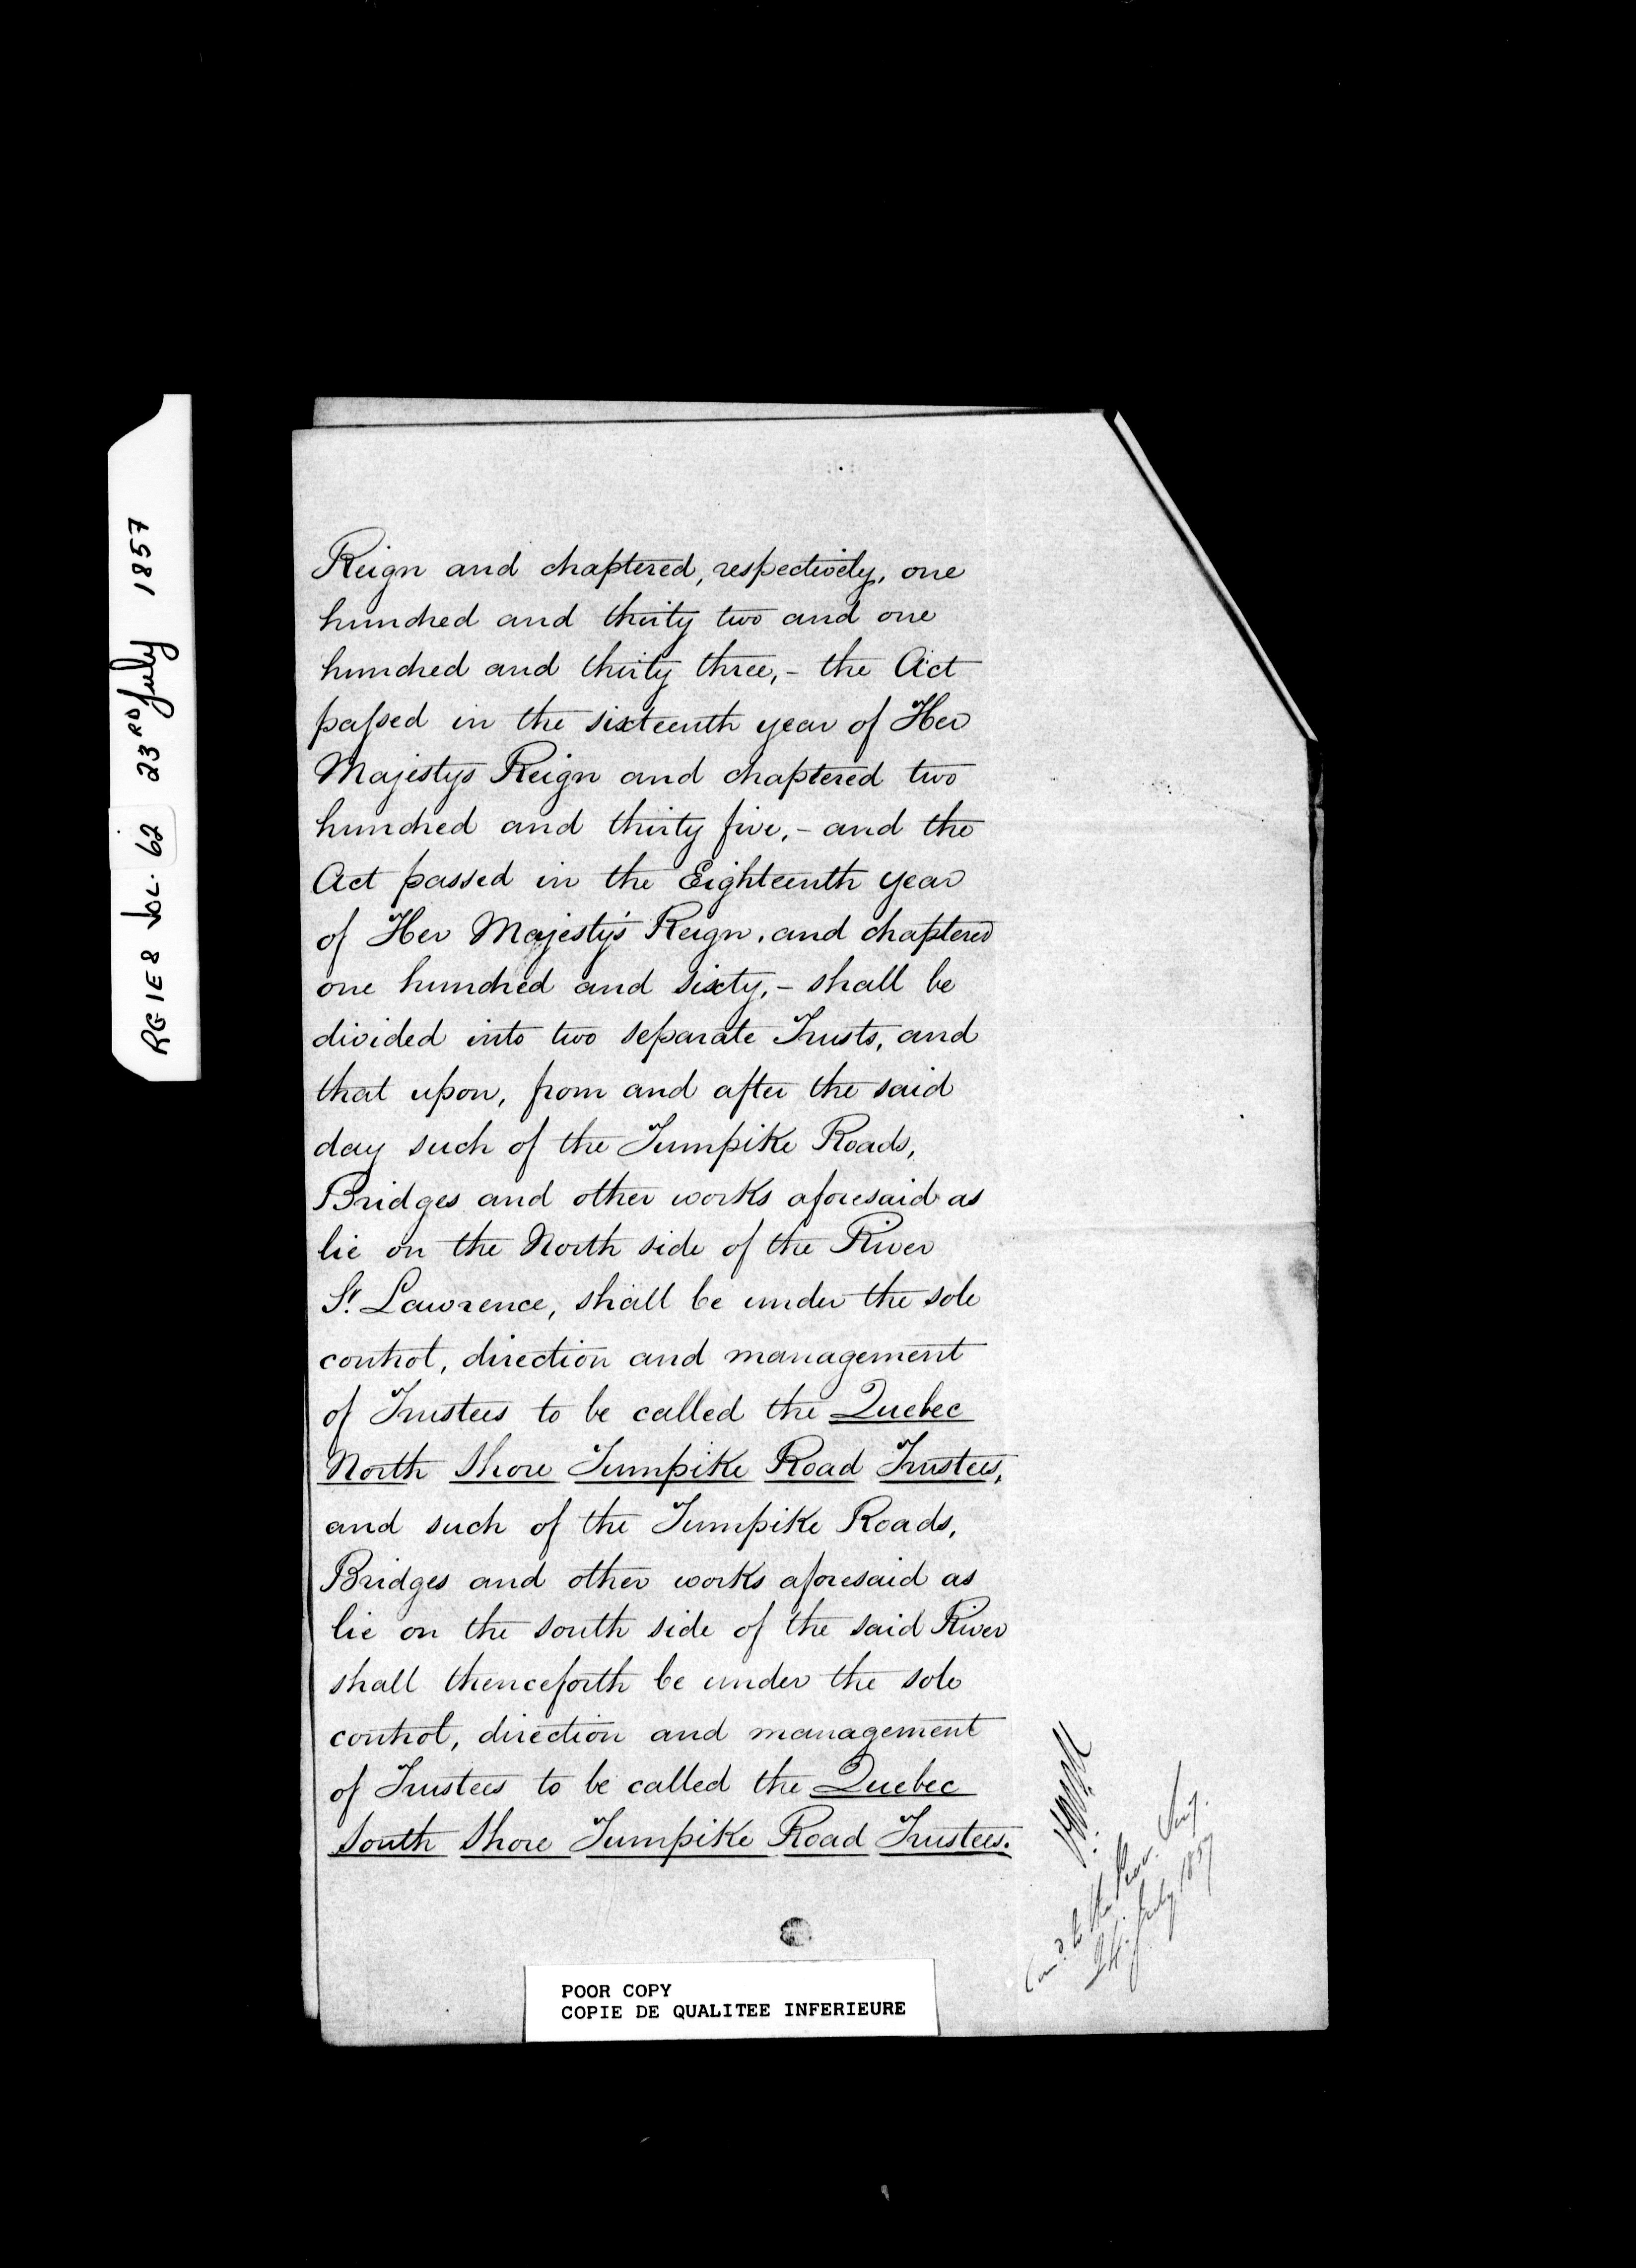 RG1E8 Vol. 62 23RD July 1857
Reign and chaptered, respectively, one
hundred and thirty two and one
hundred and thirty three,- the Act
passed in the sixteenth year of Her
Majestys Reign and chaptered two
hundred and thirty five,- and the
Act passed in the Eighteenth year
of Her Majesty's Reign, and chaptered
one hundred and sixty,- shall be
divided into two separate Trusts, and
that upon, from and after the said
day such of the Turnpike Roads,
Bridges and other works aforesaid as
lie on the North side of the River
St. Lawrence, shall be under the sole
control, direction and management
of Trustees to be called the Quebec
North Shore Turnpike Road Trustees,
and such of the Turnpike Roads,
Bridges and other works aforesaid as
lie on the south side of the said River
shall thenceforth be under the sole
control, direction and management
of Trustees to be called the Quebec
South Shore Turnpike Road Trustees.
to the Prov. Secy.
24. July 1857
POOR COPY
COPIE DE QUALITEE INFERIEURE